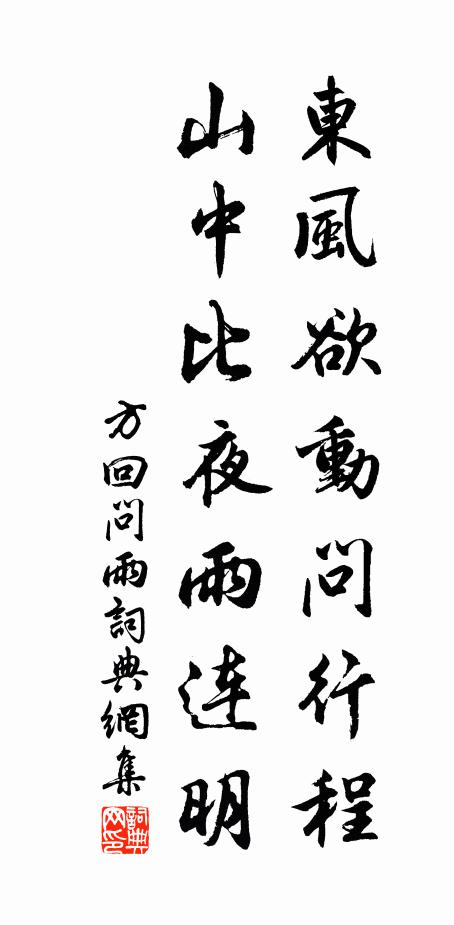 東風欲動問行程
山中比夜雨连明
方回問雨詞典網集
詞典网印